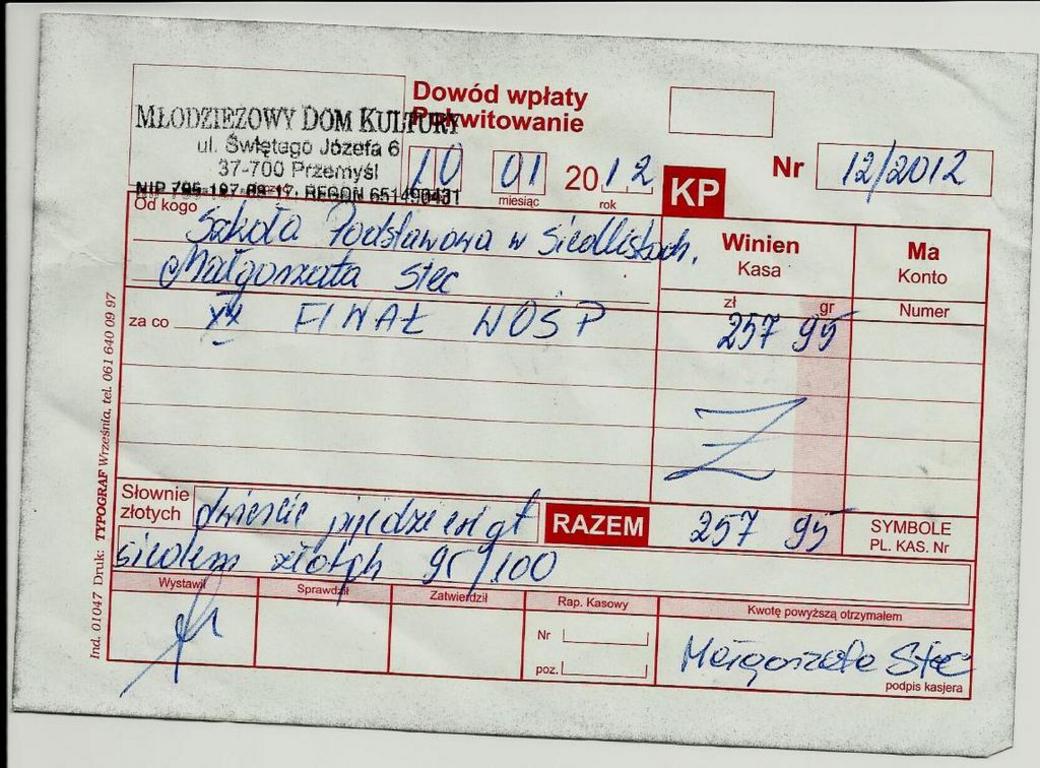 MŁODZIEŻOWY DOM KULTURY
ul. Świętego Józefa 6
37-700 Przemyśl
NIP 795-197-89-17, REGON 651490431
Dowód wpłaty
Pokwitowanie
10 01 2012
miesiąc rok
KP
Nr 12/2012
Od kogo Szkoła Podstawowa w Siedliskach,
Małgorzata Stec
Winien
Kasa
Ma
Konto
zł gr
Numer
za co XX FINAŁ WOŚP 257 95
Słownie
złotych dwieście pięćdziesiąt
RAZEM 257 95
SYMBOLE
PL. KAS. Nr
siedem złotych 95/100
Wystawił Sprawdził Zatwierdził Rap. Kasowy Kwotę powyższą otrzymałem
Nr
poz.
Małgorzata Stec
podpis kasjera
Ind. 01047 Druk: TYPOGRAF Września, tel. 061 640 09 97